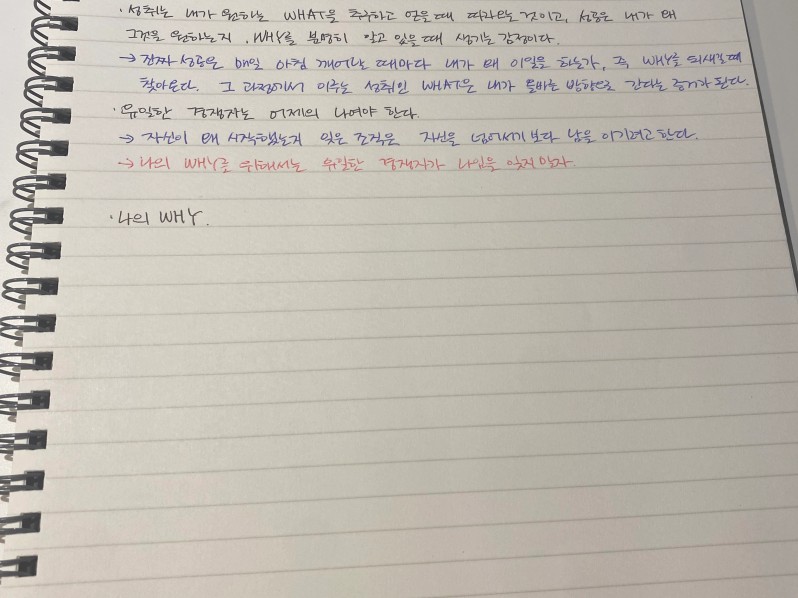 · 성취는 내가 원하는 WHAT을 추구하고 얻을 때 따라오는 것이고, 성공은 내가 왜
그것을 원하는지, WHY를 분명히 알고 있을 때 생기는 감정이다.
→ 진짜 성공은 매일 아침 깨어날 때마다 내가 왜 이일을 하는가, 즉 WHY를 되새길때
찾아온다. 그 과정에서 이루는 성취인 WHAT은 내가 올바른 방향으로 간다는 증거가 된다.
· 유일한 경쟁자는 어제의 나여야 한다.
→ 자신이 왜 시작했는지 잊은 조직은 자신을 넘어서기 보다 남을 이기려고 한다.
→ 나의 WHY를 위해서는 유일한 경쟁자가 나임을 잊지 말자
· 나의 WHY.